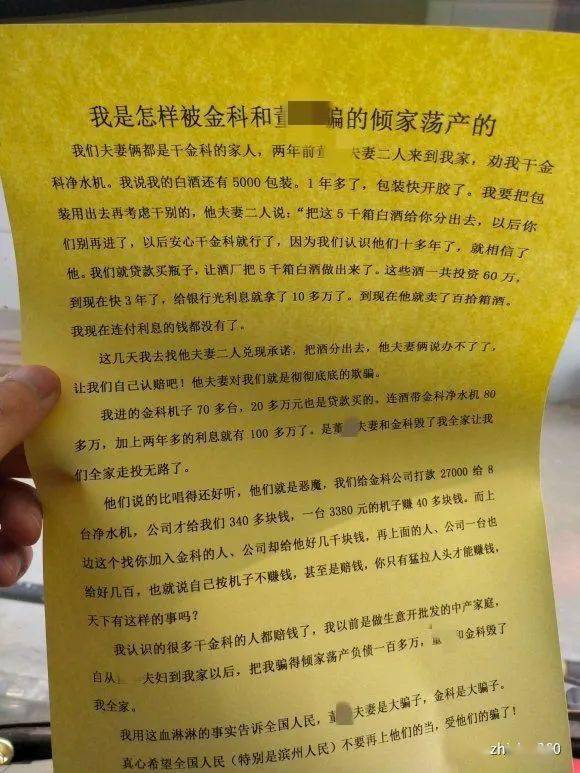 我是怎样被金科和董 骗的倾家荡产的
我们夫妻俩都是干金科的家人，两年前董 夫妻二人来到我家，劝我干金
科净水机。我说我的白酒还有5000包装。1年多了，包装快开胶了。我要把包
装用出去再考虑干别的，他夫妻二人说：“把这5千箱白酒给你分出去，以后你
们别再进了，以后安心干金科就行了，因为我们认识他们十多年了，就相信了
他。我们就贷款买瓶子，让酒厂把5千箱白酒做出来了。这些酒一共投资60万，
到现在快3年了，给银行光利息就拿了10多万了。到现在他就卖了百拾箱酒。
我现在连付利息的钱都没有了。
这几天我去找他夫妻二人兑现承诺，把酒分出去，他夫妻俩说办不了了，
让我们自己认赔吧！他夫妻对我们就是彻彻底底的欺骗。
我进的金科机子70多台，20多万元也是贷款买的。连酒带金科净水机80
多万，加上两年多的利息就有100多万了。是董 夫妻和金科毁了我全家让我
们全家走投无路了。
他们说的比唱得还好听，他们就是恶魔，我们给金科公司打款27000给8
台净水机，公司才给我们340多块钱，一台3380元的机子赚40多块钱。而上
边这个找你加入金科的人、公司却给他好几千块钱，再上面的人、公司一台也
给好几百，也就说自己按机子不赚钱，甚至是赔钱，你只有猛拉人头才能赚钱，
天下有这样的事吗？
我认识的很多干金科的人都赔钱了，我以前是做生意开批发的中产家庭，
自从 夫妇到我家以后，把我骗得倾家荡产负债一百多万，董 和金科毁了
我全家。
我用这血淋淋的事实告诉全国人民，董 夫妻是大骗子，金科是大骗子。
真心希望全国人民（特别是滨州人民）不要再上他们的当，受他们的骗了！